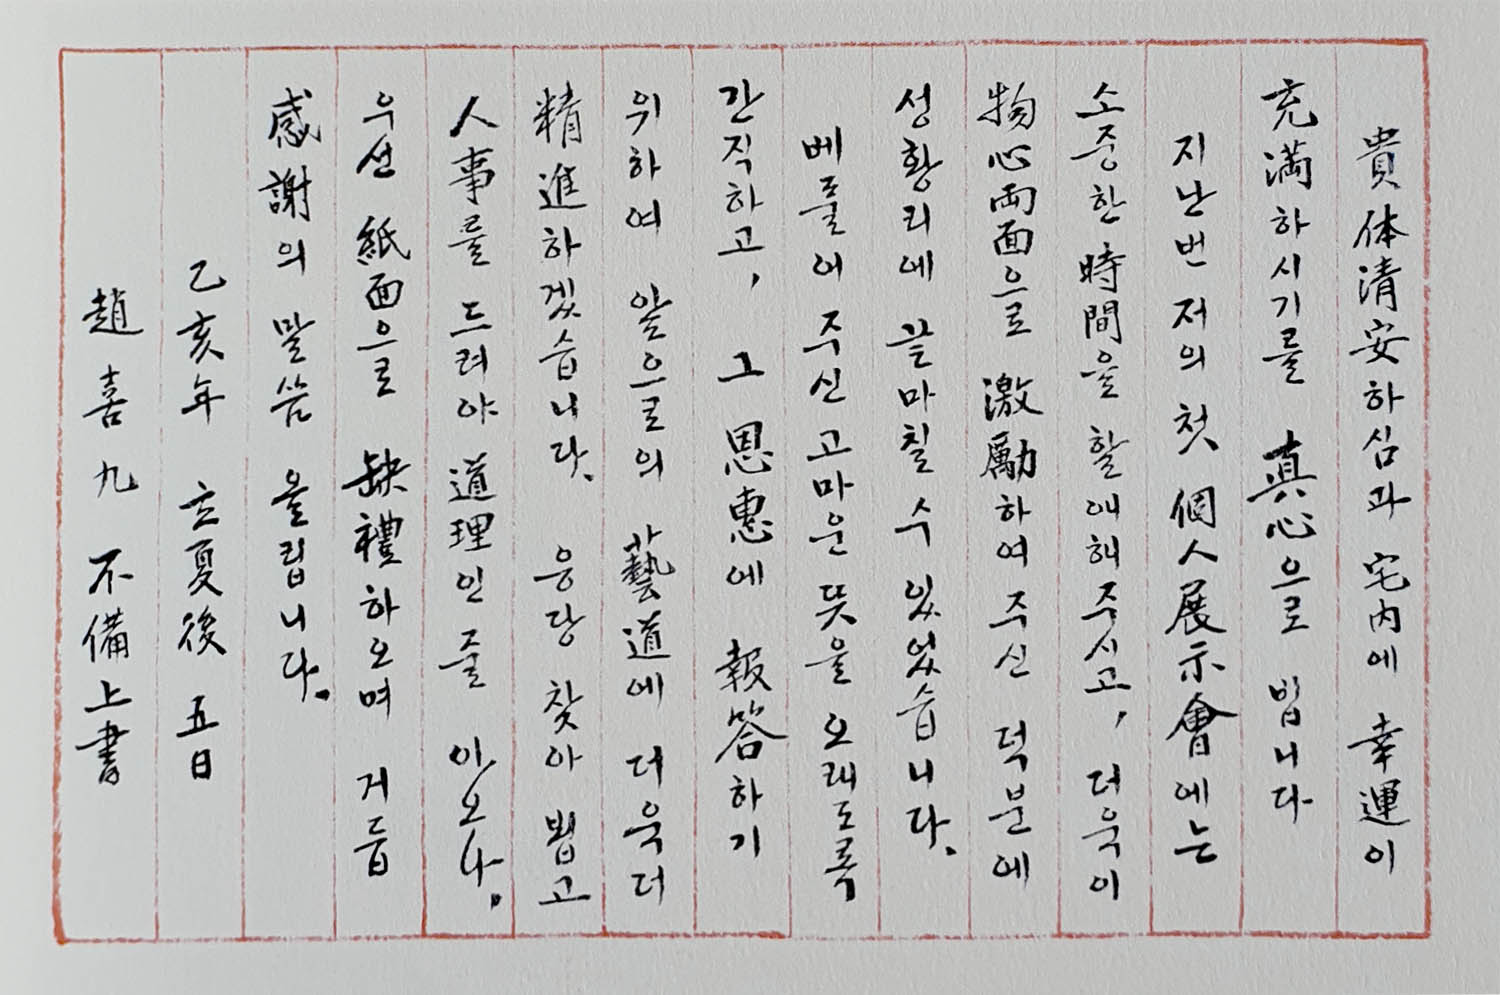 貴体清安하심과 宅内에 幸運이
充満하시기를 真心으로 빕니다
지난번 저의 첫 個人展示會에는
소중한 時間을 할애해주시고, 더욱이
物心両面으로 激勵하여 주신 덕분에
성황리에 끝마칠 수 있었습니다.
베풀어 주신 고마운 뜻을 오래도록
간직하고, 그 恩惠에 報答하기
위하여 앞으로의 藝道에 더욱더
精進하겠습니다. 응당 찾아 뵙고
人事를 드려야 道理인 줄 아오나.
우선 紙面으로 缺禮하오며 거듭
感謝의 말씀 올립니다.
乙亥年 立夏後 五日
趙喜九 不備上書